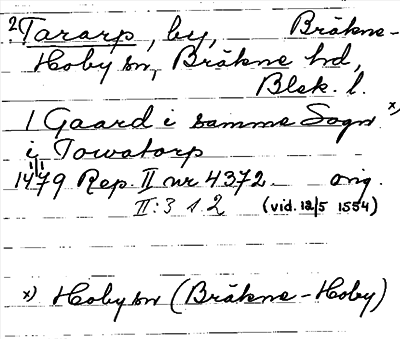 2 Tararp, by, Bräkne-
Hoby sn, Bräkne hd,
Blek. l.
1 Gaard i samme Sogn x)
i Towatorp
1/1
1479 Rep. II nr 4372. orig.
II:3 s. 2 (vid. 12/5 1554)
x) Hoby sn (Bräkne-Hoby)